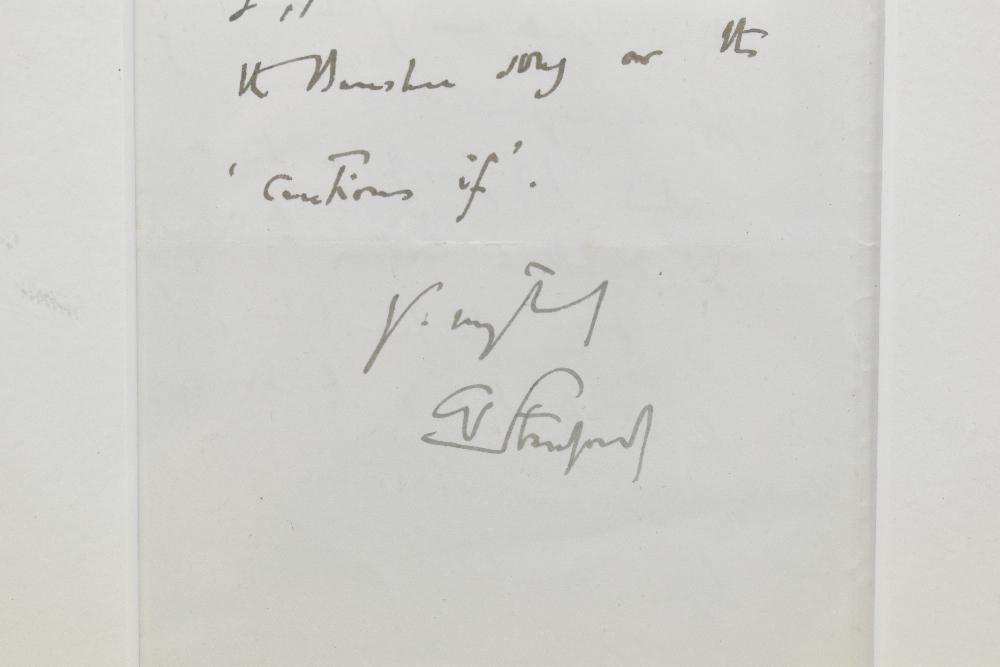 the Banshee song or the
'cautious if'.
Yrs. very truly
CV Stanford